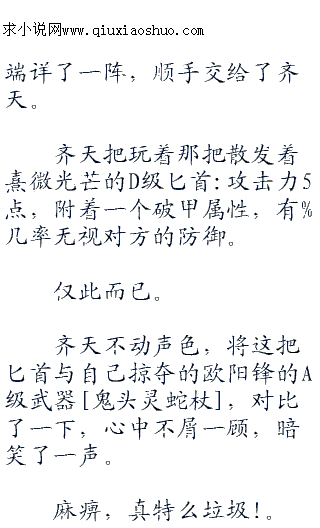 求小说网www.qiuxiaoshuo.com
端详了一阵，顺手交给了齐
天。
齐天把玩着那把散发着
熹微光芒的D级匕首:攻击力5
点，附着一个破甲属性，有%
几率无视对方的防御。
仅此而已。
齐天不动声色，将这把
匕首与自己掠夺的欧阳锋的A
级武器[鬼头灵蛇杖]，对比
了一下，心中不屑一顾，暗
笑了一声。
麻痹，真特么垃圾!。